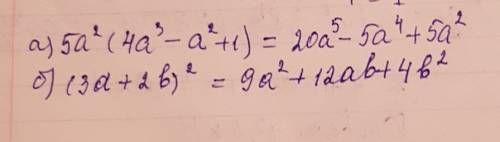 а) 5a² (4a³ - a² + 1) = 20a⁵ - 5a⁴ + 5a²
б) (3a + 2b)² = 9a² + 12ab + 4b²